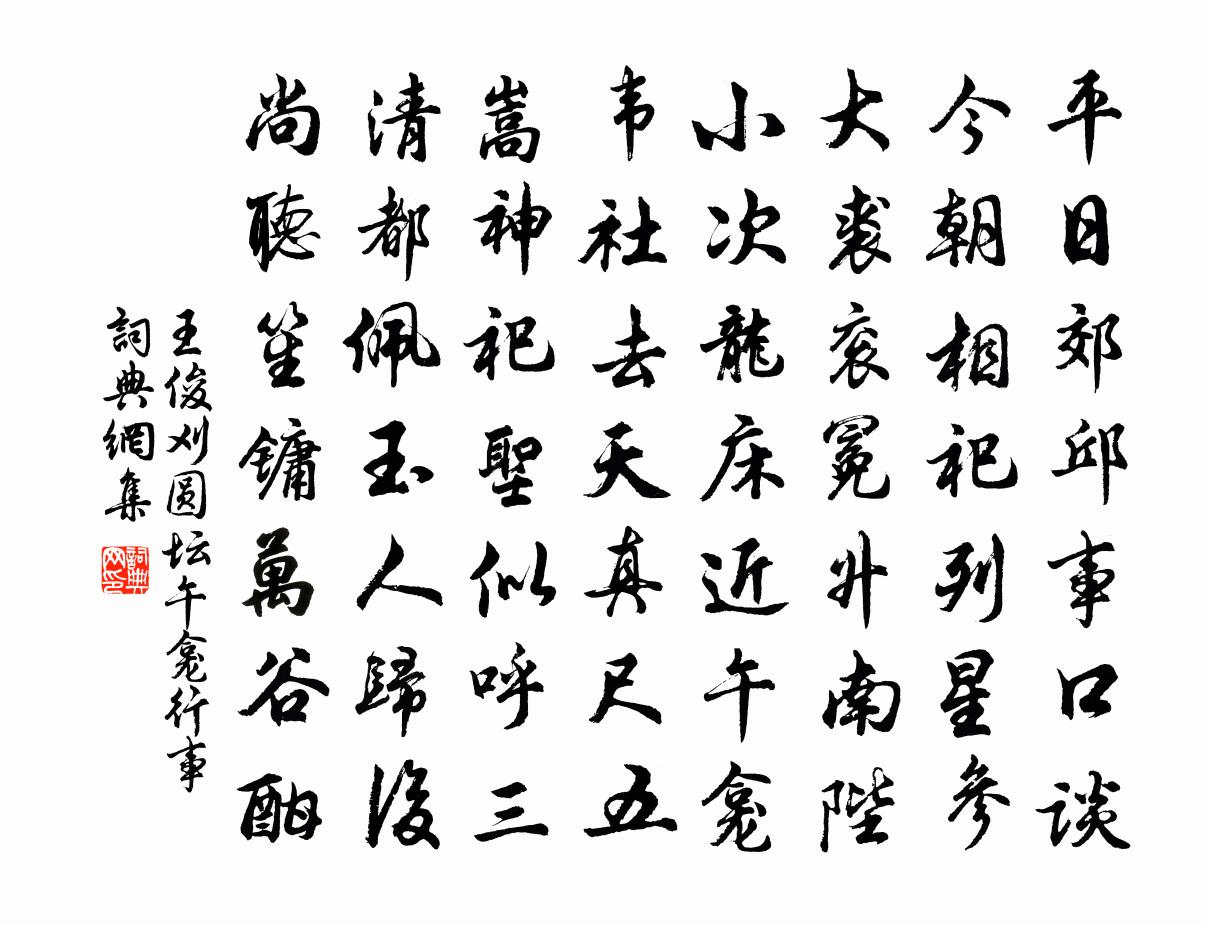 平日郊邱事口谈
今朝相祀列星參
大裘衮冕升南陛
小次龍床近午龛
韦社去天真尺五
嵩神祀聖似呼三
清都佩玉人歸後
尚聽笙鏞萬谷酣
王俊刈圆坛午龛行事
詞典網集
詞典网印